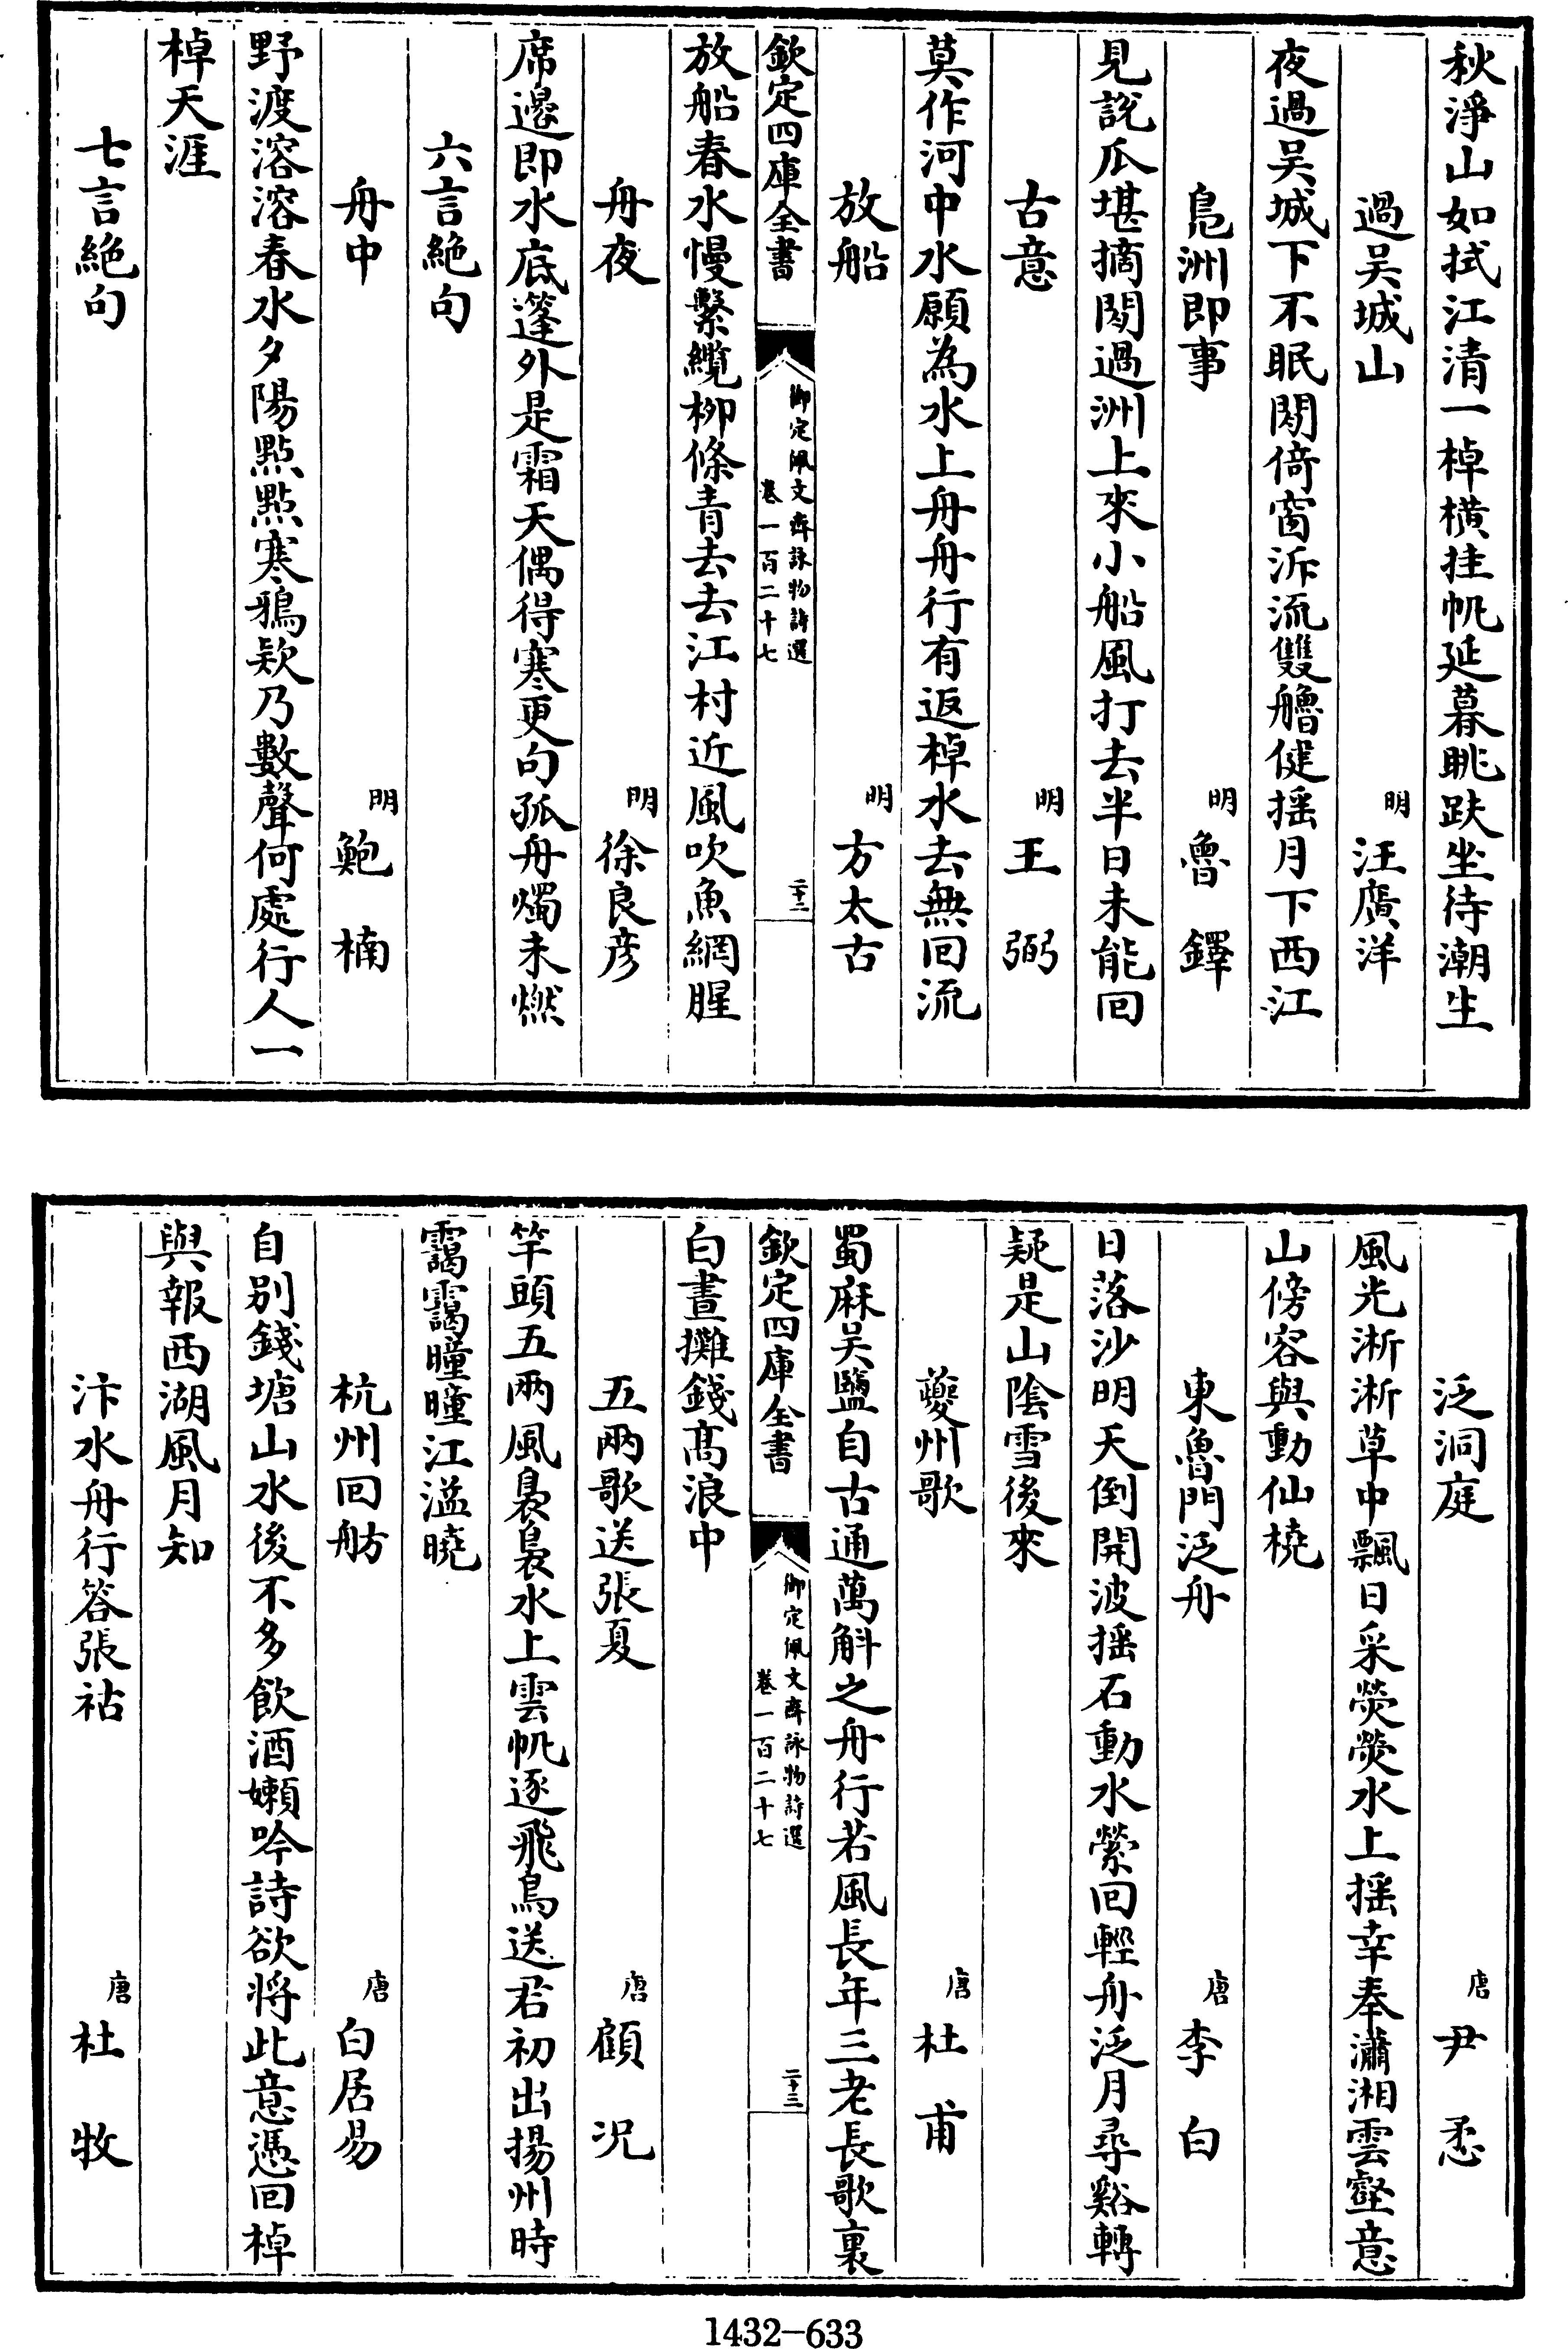 秋淨山如拭江清一棹橫挂帆延暮眺趺坐待潮生
過吴城山
明
汪廣洋
夜過吴城下不眠閒倚窗泝流雙艪健揺月下西江
鳬洲即事
明
魯鐸
見說瓜堪摘閒過洲上來小船風打去半日未能回
古意
明
王弼
莫作河中水願為水上舟舟行有返棹水去無回流
放船
明
方太古
欽定四庫全書
御定佩文齋詠物詩選
卷一百二十七
二十二
放船春水慢繫纜栁條青去去江村近風吹魚網腥
舟夜
明
徐良彦
席邊即水底篷外是霜天偶得寒更句孤舟燭未燃
六言絶句
舟中
明
鮑楠
野渡溶溶春水夕陽㸃㸃寒鴉欸乃數聲何處行人一
棹天涯
七言絶句
泛洞庭
唐
尹懋
風光淅淅草中飄日采熒熒水上揺幸奉瀟湘雲壑意
山傍容與動仙橈
東魯門泛舟
唐
李白
日落沙明天倒開波揺石動水縈回輕舟泛月尋谿轉
疑是山陰雪後來
夔州歌
唐
杜甫
蜀麻吴鹽自古通萬斛之舟行若風長年三老長歌裏
欽定四庫全書
御定佩文齋詠物詩選
卷一百二十七
二十三
白晝攤錢髙浪中
五兩歌送張夏
唐
顧况
竿頭五兩風裊裊水上雲帆逐飛鳥送君初出揚州時
靄靄曈曈江溢曉
杭州回舫
唐
白居易
自别錢塘山水後不多飲酒嬾吟詩欲將此意憑回棹
與報西湖風月知
汴水舟行答張祜
唐
杜牧
1432-633